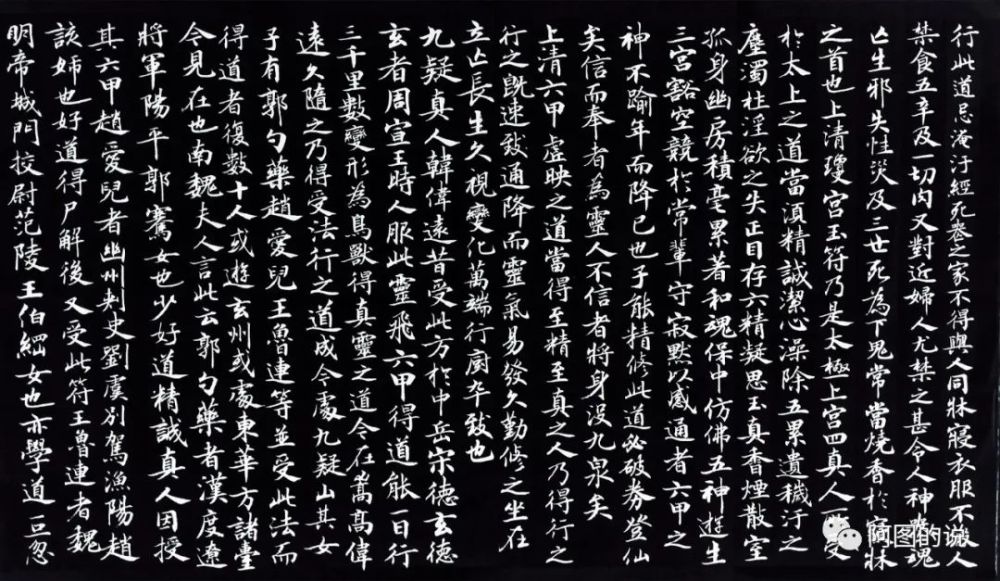 行此道忌淹汙經死喪之家不得與人同牀寢衣服不假人
禁食五辛及一切肉又對近婦人尤禁之甚令人神喪魂
亡生邪失性災及三世死為下鬼常當燒香於寢牀
之首也上清瓊宮玉符乃是太極上宮四真人所受
於太上之道當須精誠潔心澡除五累遺穢汙之
塵濁杜淫欲之失正目存六精凝思玉真香煙散室
孤身幽房積毫累著和魂保中仿佛五神遊生
三宮豁空競於常輩守寂默以感通者六甲之
神不踰年而降已也子能精修此道必破券登仙
矣信而奉者為靈人不信者將身沒九泉矣
上清六甲虛映之道當得至精至真之人乃得行之
行之既速致通降而靈氣易發久勤修之坐在
立亡長生久視變化萬端行廚卒致也
九疑真人韓偉遠昔受此方於中岳宋德玄德
玄者周宣王時人服此靈飛六甲得道能一日行
三千里數變形為鳥獸得真靈之道今在嵩高偉
遠久隨之乃得受法行之道成今處九疑山其女
子有郭勺藥趙愛兒王魯連等並受此法而
得道者復數十人或遊玄州或處東華方諸臺
今見在也南魏夫人言此云郭勺藥者漢度遼
將軍陽平郭騫女也少好道精誠真人因授
其六甲趙愛兒者幽州刺史劉虞別駕漁陽趙
該姊也好道得尸解後又受此符王魯連者魏
明帝城門校尉范陵王伯綱女也亦學道一旦忽
阿图的说